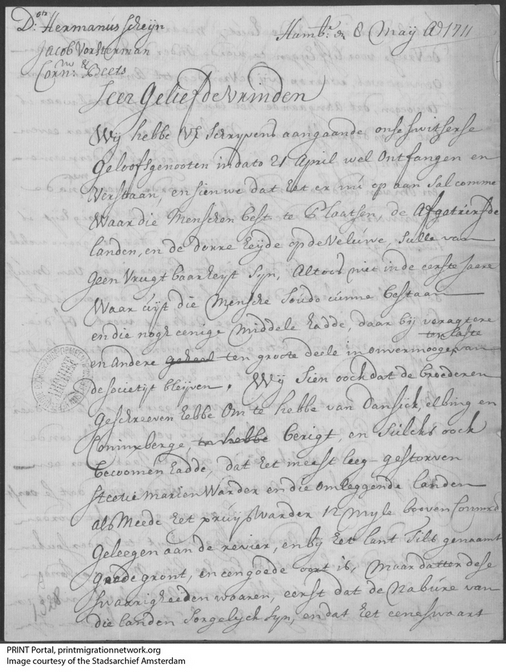 Drs. Hermanus Schijn Hamb: den 8 Maij Ao 1711
Jacob Vorsterman
&
Corns Beets
Seer Geliefde Vrinden
Wij hebbe UE Schrijvens aangaande onse switserse
Geloofsgenooten in dato 21 April wel Ontfangen en
Verstaan, en sien we dat het er nu op aan sal comme
Waar die Menschen best te Plaatsen, de
landen, en de dorre heijde op de Veluwe, Sulle van
geen Vrugtbaarheijt Sijn, Altoos niet in de eerste Jaere
Waar uijt die Mensche Soude cunne bestaan
en die nogh eenige Middele hadde, daar bij
en andere ten groote deele in onvermoogen van
de societijt blijven. Wij Sien oock dat de broederen
Geschreeven hebbe Om te hebbe van Dansick, elbing en
Coninxberge berigt, en Sulcks oock
becoomen hadde, dat het meest leeg gestorven
is Marien Warder en die Omleggende landen
als Meede het 12 Myle boven
Geleegen aan de revier, en bij het lant Tilse genaamt
goede gront, en een goede oort is, Maar datter dese
swaarigheeden waaren, eerst dat de Nabure van
die landen Sorgelijck Sijn, en dat het eene swaart
PRINT Portal, printmigrationnetwork.org
Image courtesy of the Stadsarchief Amsterdam